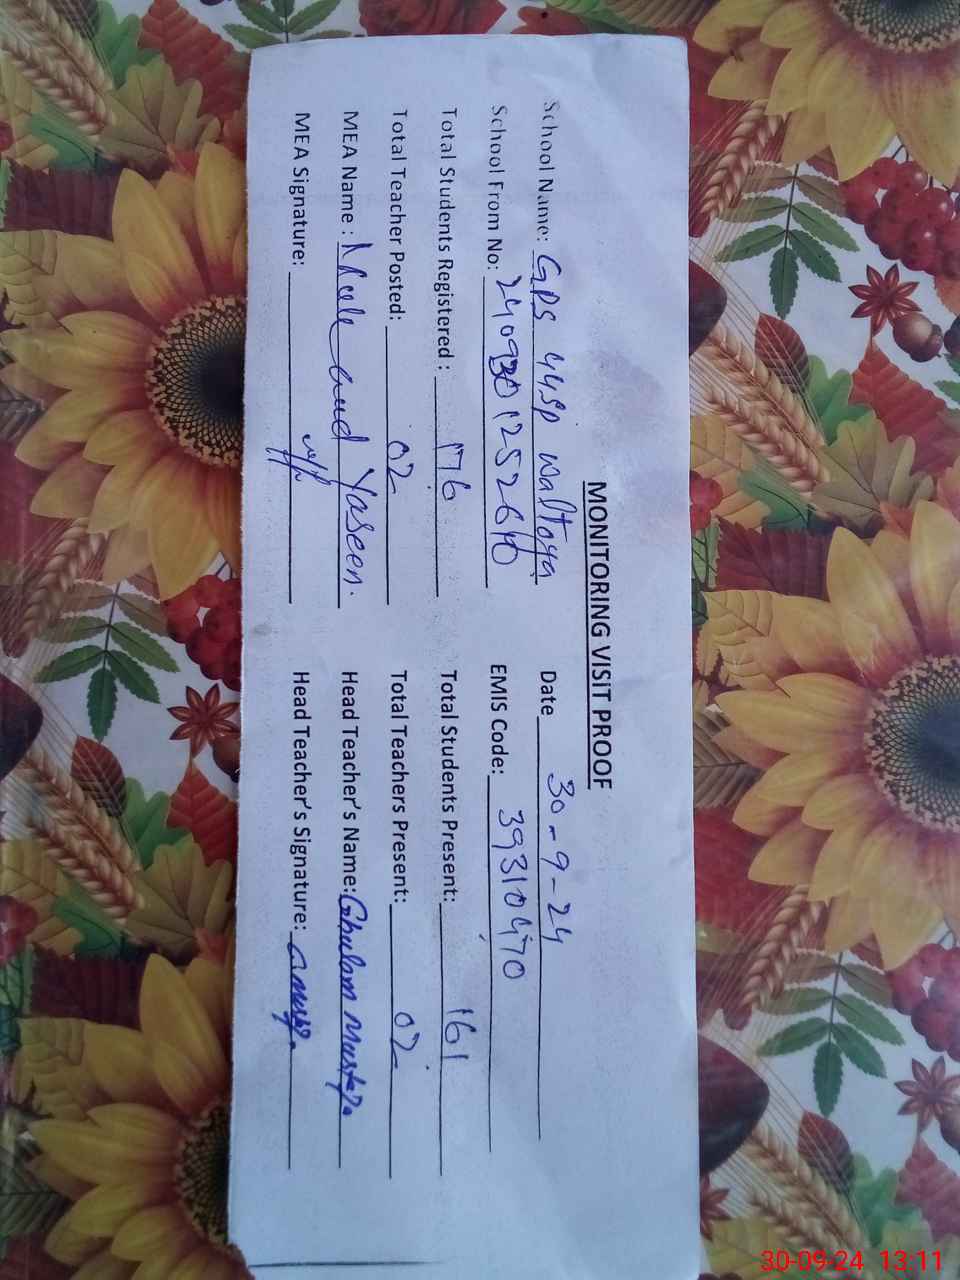 MONITORING VISIT PROOF
School Name: GPS 44SP Waltoya Date 30-9-24
School From No: EMIS Code: 39310470
Total Students Registered : 176 Total Students Present: 161
Total Teacher Posted: 02 Total Teachers Present: 02
MEA Name : Yaseen. Head Teacher's Name: Ghulam Mustafa
MEA Signature: Head Teacher's Signature:
30-09-24 13:11